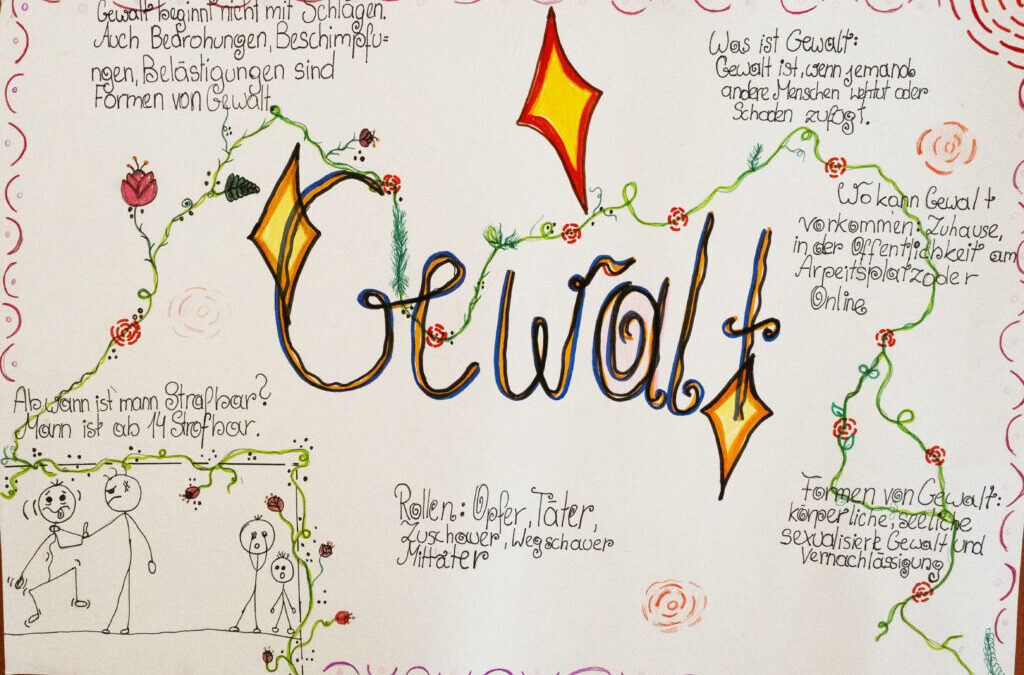 Gewalt beginnt nicht mit Schlägen.
Auch Bedrohungen, Beschimpfu-
ngen, Belästigungen sind
Formen von Gewalt
Was ist Gewalt:
Gewalt ist, wenn jemand
andere Menschen wehtut oder
Schaden zufügt.
Wo kann Gewalt
vorkommen: Zuhause,
in der Öffentlichkeit am
Arpeitsplatz oder
Online
Gewalt
Ab wann ist mann Strafbar?
Mann ist ab 14 Strafbar.
Rollen: Opfer, Täter,
Zuschauer, Wegschauer
Mittäter
Formen von Gewalt:
körperliche, seeliche
sexualisierte Gewalt und
Vernachlässigung